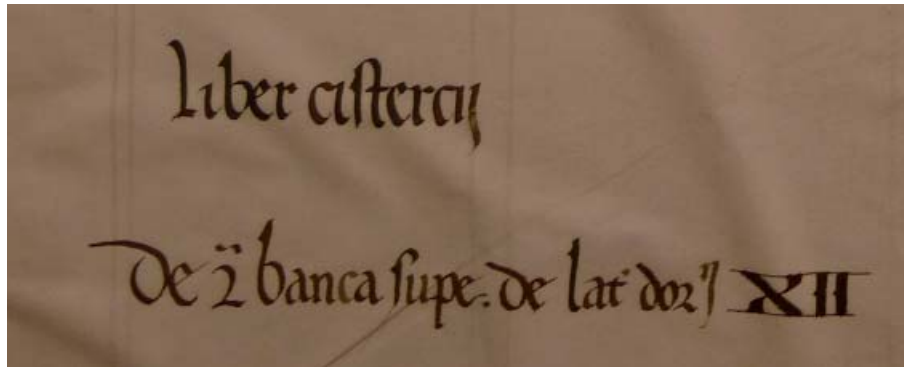 liber cistercij
De 2ᵃ banca supe. de lat' dorᵐ XII